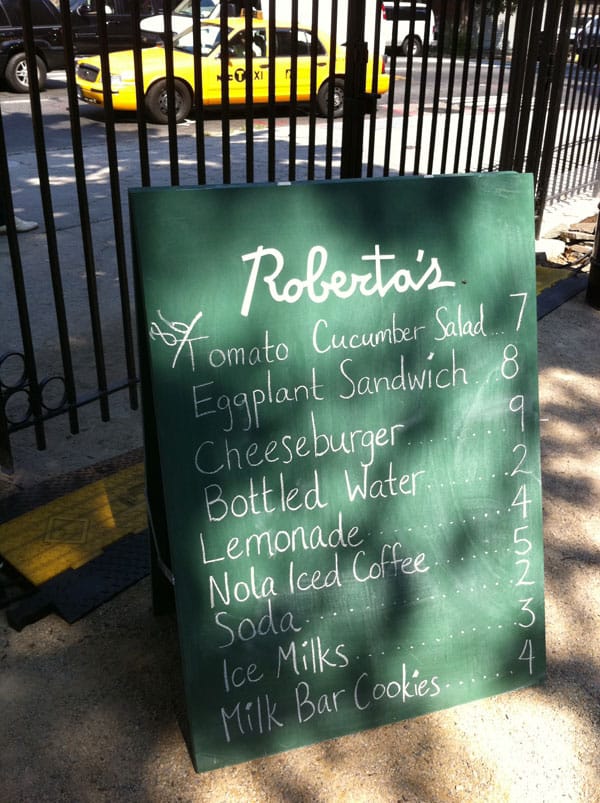 NYC TAXI
Roberta's
86/Tomato Cucumber Salad... 7
Eggplant Sandwich... 8
Cheeseburger.......... 9
Bottled Water....... 2
Lemonade............ 4
Nola Iced Coffee....... 5
Soda................. 2
Ice Milks............ 3
Milk Bar Cookies...... 4